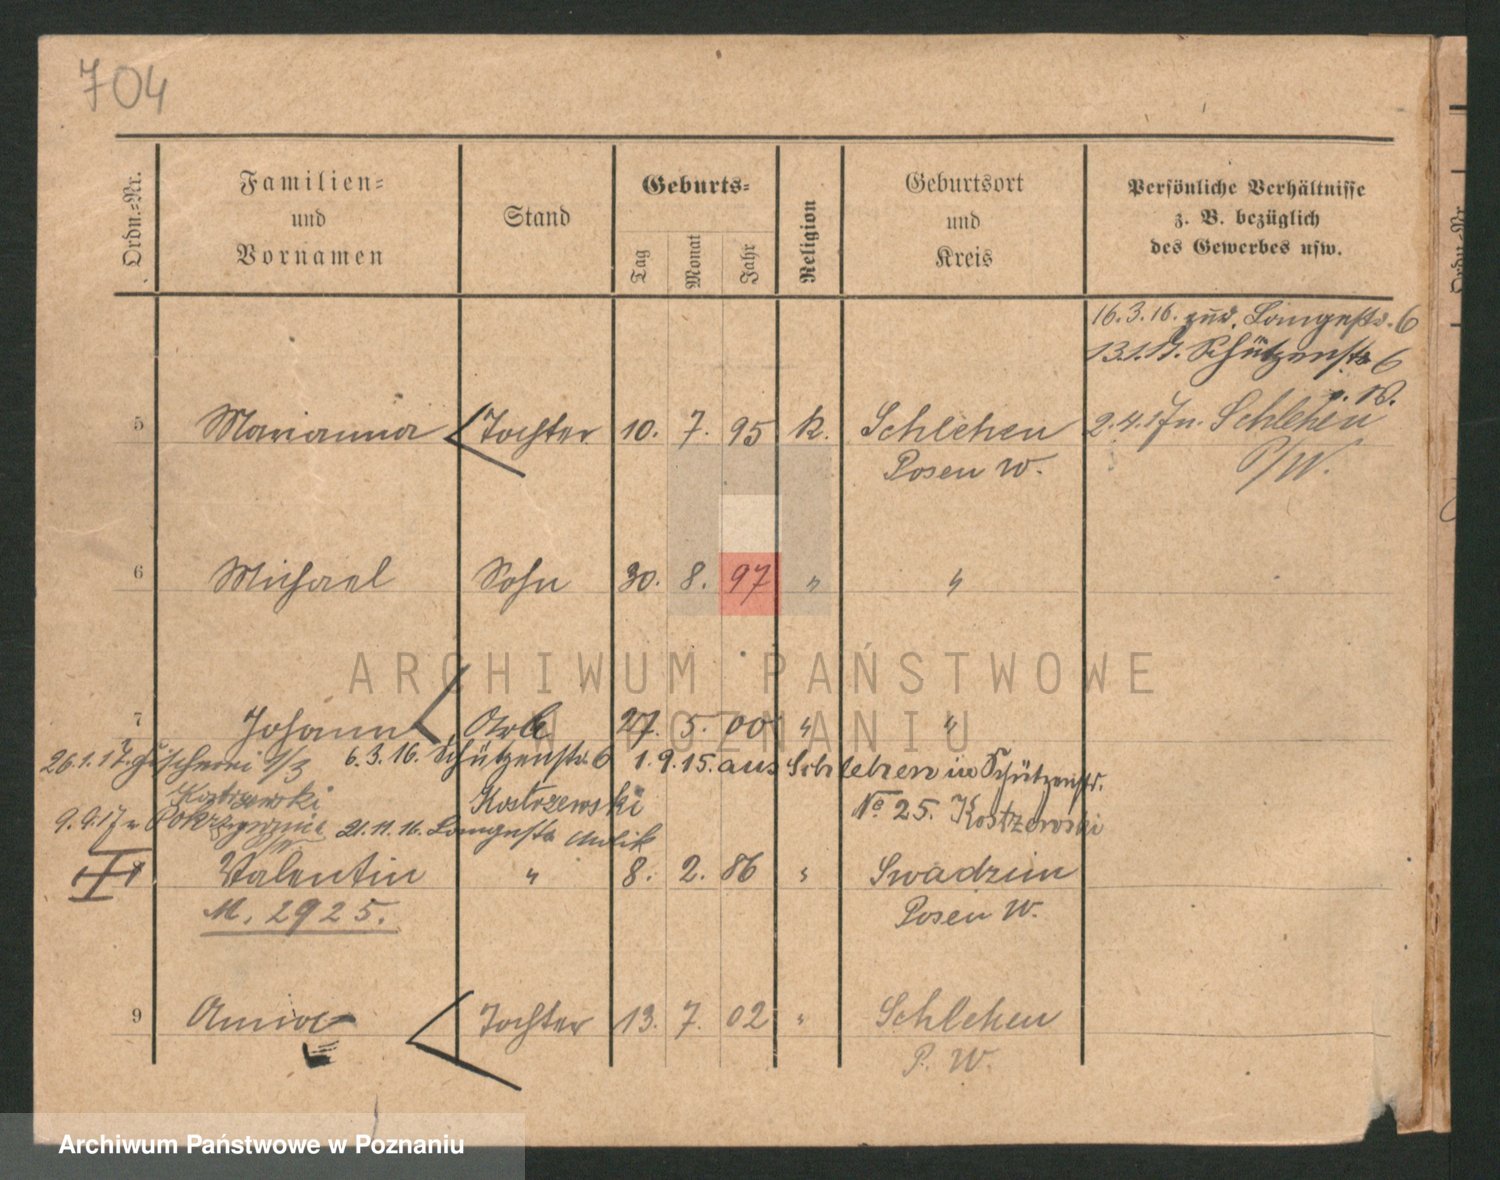 704
Ordn.-Nr.
Familien-
und
Vornamen
Stand
Geburts-
Tag
Monat
Jahr
Religion
Geburtsort
und
Kreis
Persönliche Verhältnisse
z. B. bezüglich
des Gewerbes usw.
16.3.16. zur. Langestr. 6
13.1.17. Schützenstr 6
5 Marianna Tochter 10. 7. 95 k. Schlehen 2.4.17 n. Schlehen
Posen W. P/W.
6 Michael Sohn 30. 8. 97 " "
ARCHIWUM PAŃSTWOWE
W POZNANIU
7 Johann 27. 5. 00 " "
26.1.17. Fischerei 1/3 6.3.16. Schützenstr. 6 1.9.15. aus Schlehen in Schützenstr.
Kostrzewski Kostrzewski No 25. Kostrzewski
9.9.17 n 21.11.16. Langestr
Valentin " 8. 2. 86 " Swadzim
M. 2925. Posen W.
9 Tochter 13. 7. 02 " Schlehen
P. W.
Archiwum Państwowe w Poznaniu